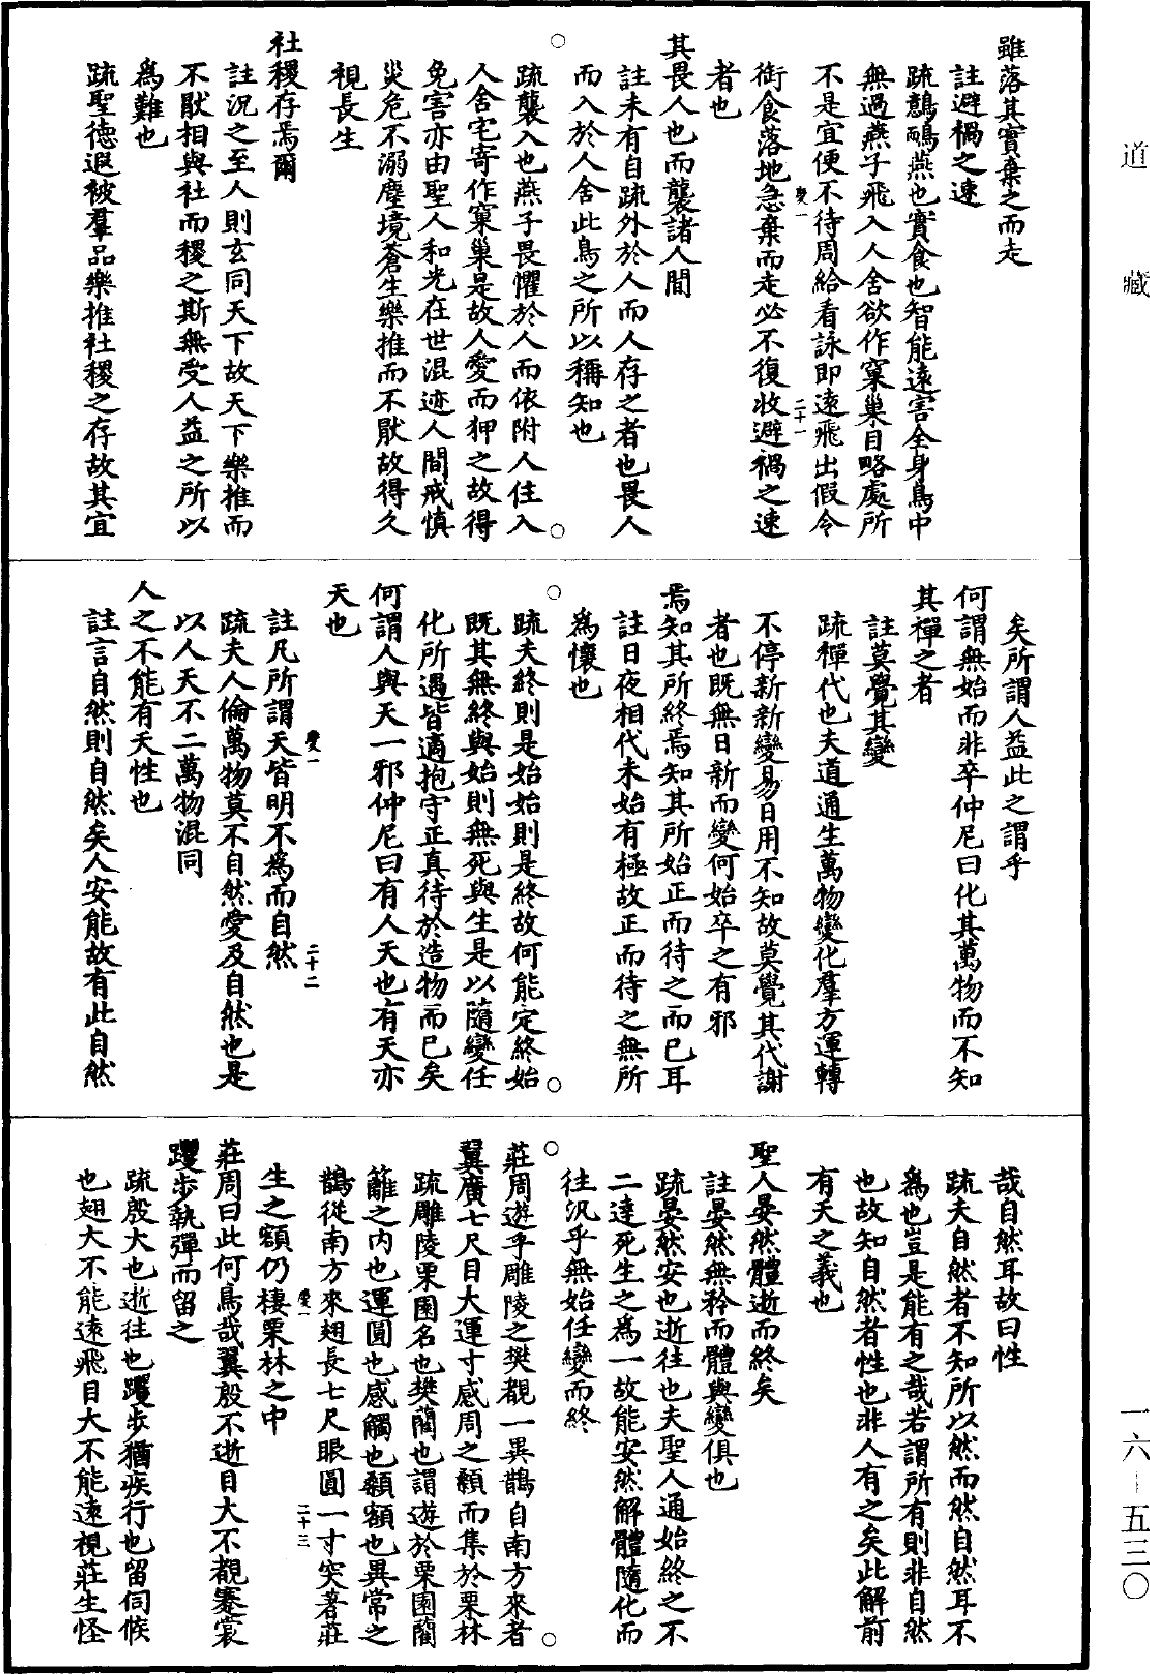 道藏
雖落其實棄之而走
註避禍之速
疏鷾鴯燕也實食也智能遠害全身鳥中
無過燕子飛入人舍欲作窠巢目略處所
不是宜便不待周給看詠即遠飛出假令
銜食落地急棄而走必不復收避禍之速
者也
其畏人也而襲諸人間
註未有自疏外於人而人存之者也畏人
而入於人舍此鳥之所以稱知也
疏襲入也燕子畏懼於人而依附人住入
人舍宅寄作窠巢是故人愛而狎之故得
免害亦由聖人和光在世混迹人間戒慎
災危不溺塵境蒼生樂推而不猒故得久
視長生
社稷存焉爾
註況之至人則玄同天下故天下樂推而
不猒相與社而稷之斯無受人益之所以
為難也
疏聖德遐被羣品樂推社稷之存故其宜
矣所謂人益此之謂乎
何謂無始而非卒仲尼曰化其萬物而不知
其禪之者
註莫覺其變
疏禪代也夫道通生萬物變化羣方運轉
不停新新變易日用不知故莫覺其代謝
者也既無日新而變何始卒之有邪
焉知其所終焉知其所始正而待之而已耳
註日夜相代未始有極故正而待之無所
為懷也
疏夫終則是始始則是終故何能定終始
既其無終與始則無死與生是以隨變任
化所遇皆適抱守正真待於造物而已矣
何謂人與天一邪仲尼曰有人天也有天亦
天也
註凡所謂天皆明不為而自然
疏夫人倫萬物莫不自然愛及自然也是
以人天不二萬物混同
人之不能有天性也
註言自然則自然矣人安能故有此自然
哉自然耳故曰性
疏夫自然者不知所以然而然自然耳不
為也豈是能有之哉若謂所有則非自然
也故知自然者性也非人有之矣此解前
有天之義也
聖人晏然體逝而終矣
註晏然無矜而體與變俱也
疏晏然安也逝往也夫聖人通始終之不
二達死生之為一故能安然解體隨化而
往汎乎無始任變而終
莊周遊乎雕陵之樊覩一異鵲自南方來者
翼廣七尺目大運寸感周之顙而集於栗林
疏雕陵栗園名也樊藺也謂遊於栗園藺
籬之內也運圓也感觸也顙額也異常之
鵲從南方來翅長七尺眼圓一寸突著莊
生之額仍棲栗林之中
莊周曰此何鳥哉翼殷不逝目大不覩蹇裳
躩步執彈而留之
疏殷大也逝往也躩步猶疾行也留伺候
也翅大不能遠飛目大不能遠視莊生怪
慶一
二十一
慶一
二十二
慶一
二十三
一六–五三〇